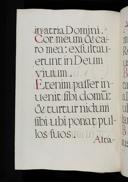 in atria Domini.
Cor meum & ca-
ro mea: exsultau-
erunt in Deum
viuum.
Etenim passer in-
uenit sibi domũ:
& turtur nidum
sibi ubi ponat pul-
los suos.
Alta-